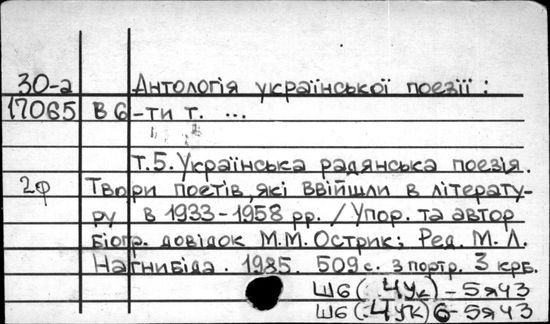 30-а Антологія української поезії:
17065 В 6-ти т. ...
Т.5. Українська радянська поезія.
2ф Твори поетів, які ввійшли в літерату-
ру в 1933-1958 рр. / Упор. та автор
біогр. довідок М.М. Острик; Ред. М. Л.
Нагнибіда. 1985. 509 с. з портр. 3 крб.
Ш6(.4Ук)-5я43
Ш6(.4УК)6-5я43